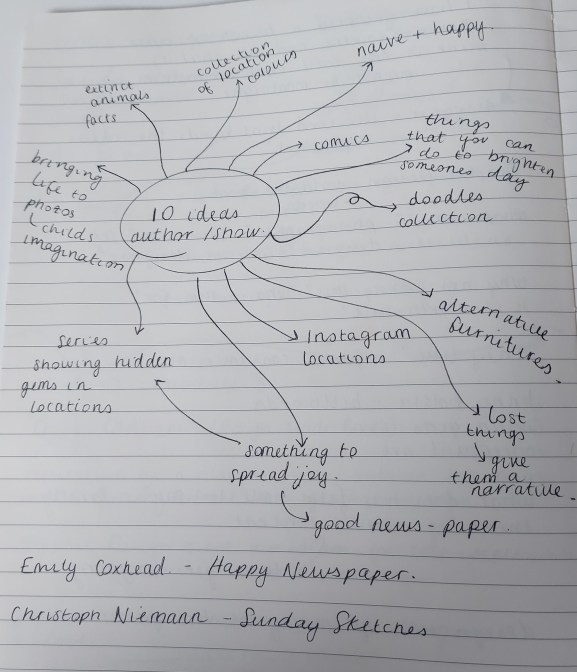 extinct
animals
facts
collection
of location
colours
naive + happy.
comics
things
that you can
do to brighten
someones day
bringing
life to
photos
childs
imagination
10 ideas
author /show.
doodles
collection
alternative
furnitures.
series
showing hidden
gems in
locations
Instagram
locations
lost
things
give
them a
narrative.
something to
spread joy.
good news-paper.
Emily Coxhead - Happy Newspaper.
Christoph Niemann - Sunday Sketches